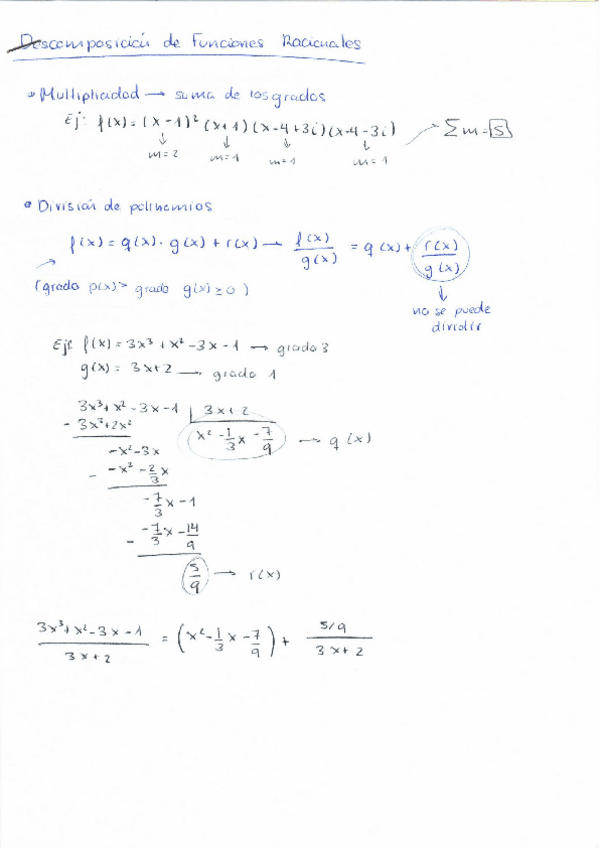 Descomposición de Funciones Racionales
• Multiplicidad → suma de los grados
Ej: f(x) = (x-1)² (x+1) (x-4+3i) (x-4-3i) → ∑m = 5
↓ ↓ ↓ ↓
m=2 m=1 m=1 m=1
• División de polinomios
f(x) = q(x) · g(x) + r(x) → f(x)/g(x) = q(x) + r(x)/g(x)
(grado p(x) > grado g(x) ≥ 0)
↓
no se puede
dividir
Ej: f(x) = 3x³ + x² - 3x - 1 → grado 3
g(x) = 3x+2 → grado 1
3x³ + x² - 3x - 1 | 3x+2
- 3x³+2x² x² - 1/3 x - 7/9 → q(x)
-x² - 3x
- -x² - 2/3 x
-7/3 x - 1
- -7/3 x - 14/9
5/9 → r(x)
3x³+x²-3x-1 / 3x+2 = (x² - 1/3 x - 7/9) + 5/9 / 3x+2